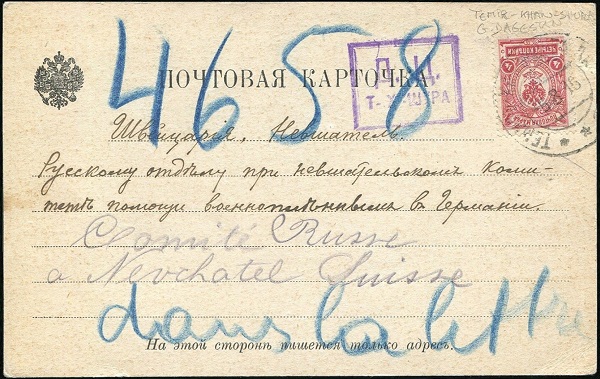 TEMIR-KHAN-SHURA
G. DAGESTAN
4658
ПОЧТОВАЯ КАРТОЧКА.
Д. Ц.
Т. Х. ШУРА
ЧЕТЫРЕ КОПѢЙКИ
4 4
Швейцарія, Невшатель.
Русскому отдѣлу при невшательскомъ коми-
тетѣ помощи военноплѣннымъ въ Германіи.
Comité Russe
a Neuchatel Suisse
dans la lettre
На этой сторонѣ пишется только адресъ.